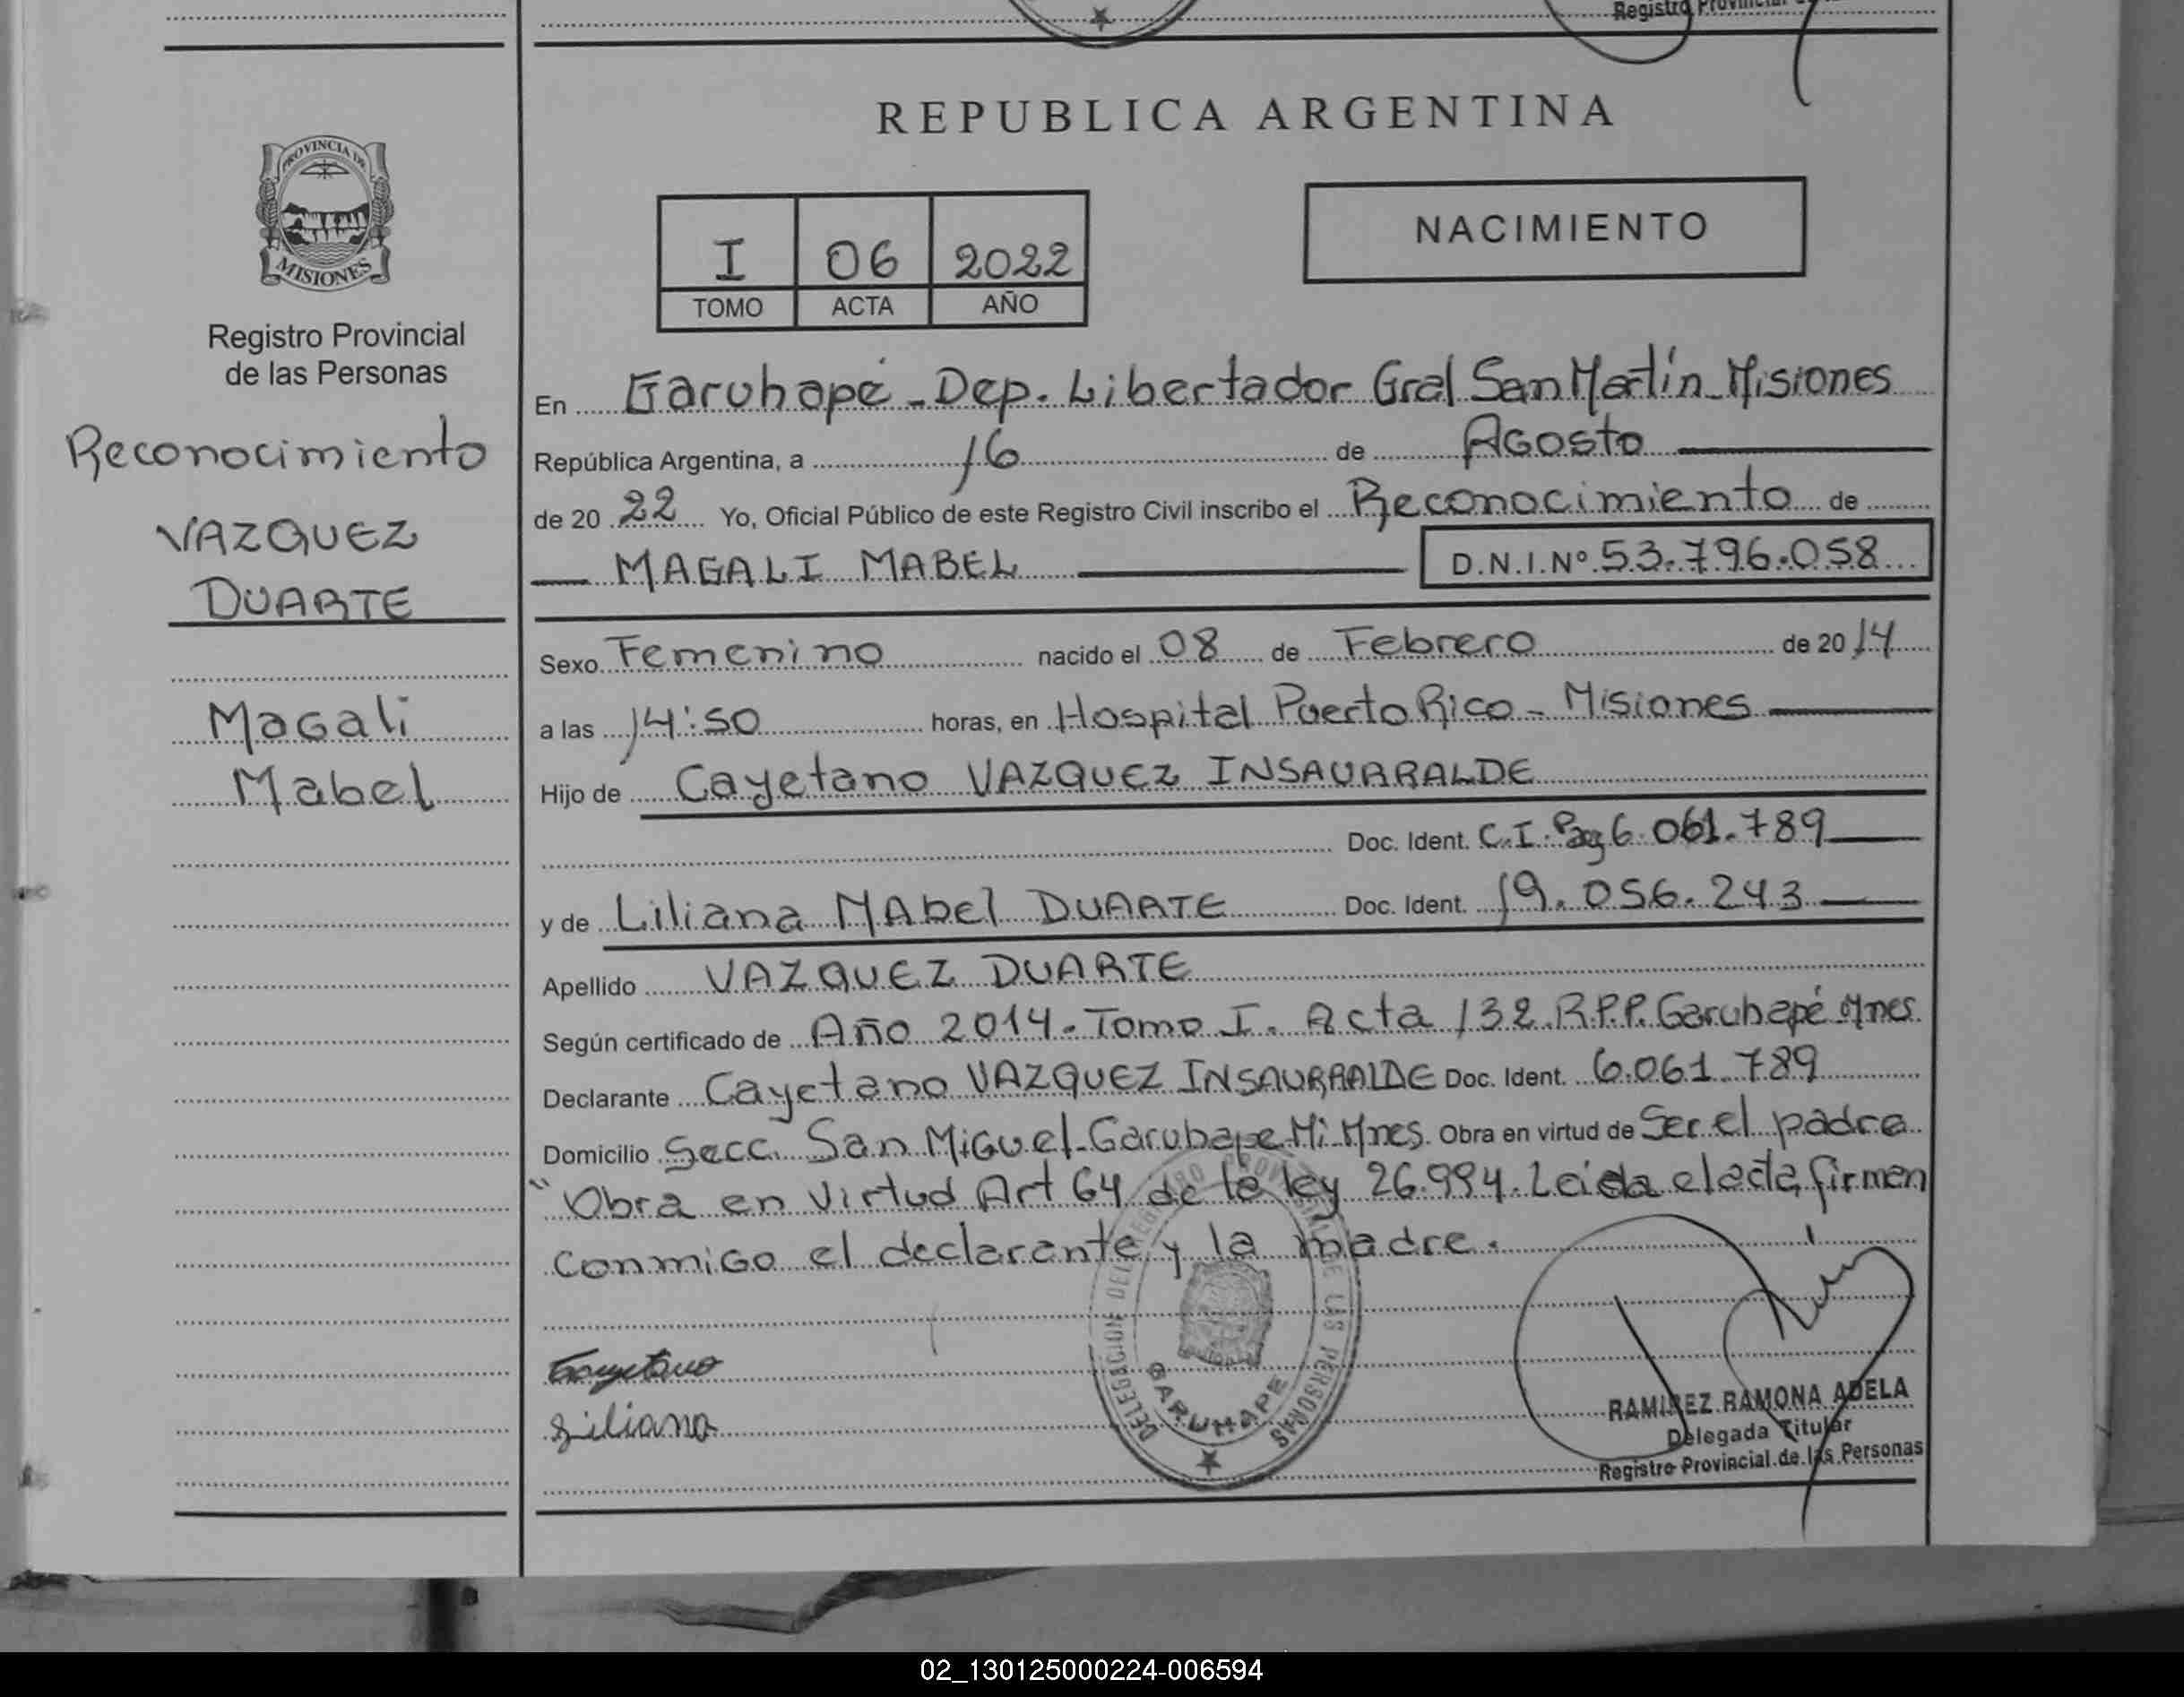 Registro Provincial
REPUBLICA ARGENTINA
PROVINCIA DE
MISIONES
Registro Provincial
de las Personas
Reconocimiento
VAZQUEZ
DUARTE
Magali
Mabel
I 06 2022
TOMO ACTA AÑO
NACIMIENTO
En Garuhapé - Dep. Libertador Gral San Martín - Misiones
República Argentina, a 16 de Agosto
de 20 22 Yo, Oficial Público de este Registro Civil inscribo el Reconocimiento de
MAGALI MABEL D.N.I.Nº 53.796.058
Sexo Femenino nacido el 08 de Febrero de 20 14
a las 14:50 horas, en Hospital Puerto Rico - Misiones
Hijo de Cayetano VAZQUEZ INSAURRALDE
Doc. Ident. C.I. Pag 6.061.789
y de Liliana MAbel DUARTE Doc. Ident. 19.056.243
Apellido VAZQUEZ DUARTE
Según certificado de Año 2014. Tomo I. Acta 132. R.P.P. Garuhapé Mnes.
Declarante Cayetano VAZQUEZ INSAURRALDE Doc. Ident. 6.061.789
Domicilio Secc. San Miguel - Garuhape Mi Mnes. Obra en virtud de Ser el padre
"Obra en virtud Art 64 de la ley 26.994. Leida el acta, firman
conmigo el declarante y la madre.
Cayetano
Liliana
DELEGACION DEL REGISTRO PROVINCIAL DE LAS PERSONAS
GARUHAPE
RAMIREZ RAMONA ADELA
Delegada Titular
Registro Provincial de las Personas
02_130125000224-006594